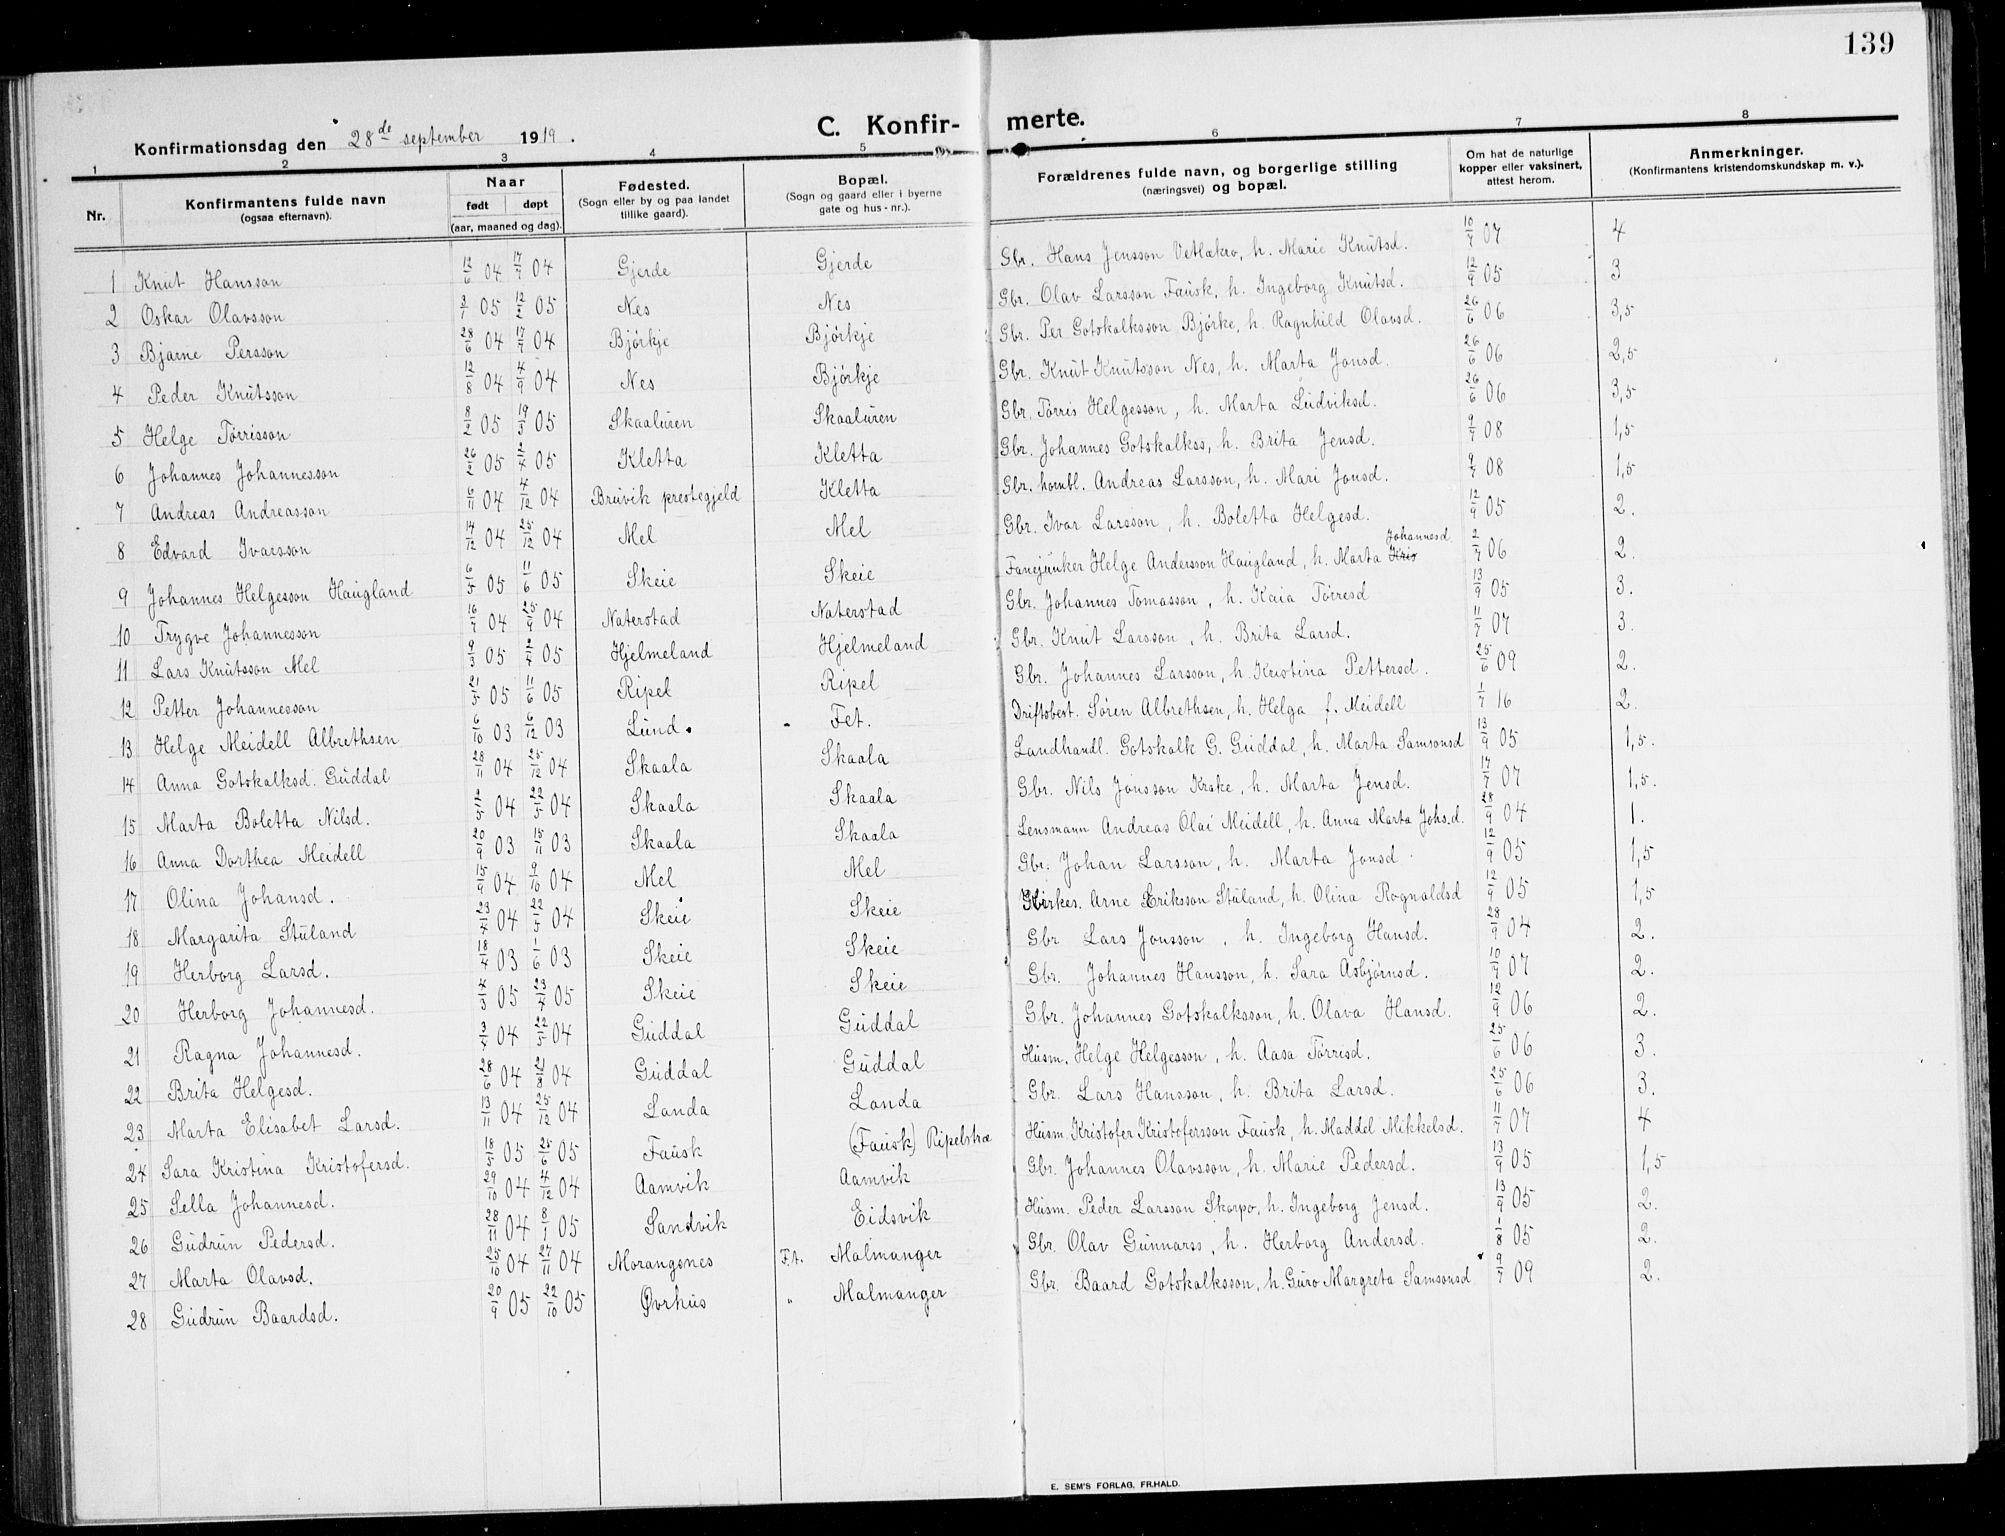 139
C. Konfirmerte.
Konfirmationsdag den 28de september 1919.
1 2 3 4 5 6 7 8
Nr. | Konfirmantens fulde navn (ogsaa efternavn). | Naar født døpt (aar, maaned og dag). | Fødested. (Sogn eller by og paa landet tillike gaard). | Bopæl. (Sogn og gaard eller i byerne gate og hus-nr.). | Forældrenes fulde navn, og borgerlige stilling (næringsvei) og bopæl. | Om hat de naturlige kopper eller vaksinert, attest herom. | Anmerkninger. (Konfirmantens kristendomskundskap m. v.).
1 Knut Hansson 12/6 04 17/7 04 Gjerde Gjerde Gbr. Hans Jensson Vetlakro, h. Marie Knutsd. 10/7 07 4
2 Oskar Olavsson 3/1 05 12/2 05 Nes Nes Gbr. Olav Larsson Fausk, h. Ingeborg Knutsd. 12/9 05 3
3 Bjarne Persson 28/6 04 17/7 04 Bjórkje Bjórkje Gbr. Per Gotskalksson Bjórke, h. Ragnhild Olavsd. 26/6 06 3,5
4 Peder Knutsson 12/8 04 4/9 04 Nes Bjórkje Gbr. Knut Knutsson Nes, h. Marta Jonsd. 26/6 06 2,5
5 Helge Tørrisson 8/2 05 19/3 05 Skaaluren Skaaluren Gbr. Tørris Helgesson, h. Marta Ludviksd. 26/6 06 3,5
6 Johannes Johannesson 26/2 05 2/4 05 Kletta Kletta Gbr. Johannes Gotskalkss, h. Brita Jensd. 9/7 08 1,5
7 Andreas Andreasson 6/11 04 4/12 04 Bruvik prestegjeld Kletta Gbr. hornbl. Andreas Larsson, h. Mari Jonsd. 9/7 08 1,5
8 Edvard Ivarsson 14/12 04 25/12 04 Mel Mel Gbr. Ivar Larsson, h. Boletta Helgesd. 12/9 05 2.
9 Johannes Helgesson Haugland 6/5 05 11/6 05 Skeie Skeie Fanejunker Helge Andersson Haugland, h. Marta Johannesd 2/7 06 2.
10 Trygve Johannesson 16/7 04 25/9 04 Naterstad Naterstad Gbr. Johannes Tomasson, h. Kaia Tørresd 13/9 05 3.
11 Lars Knutsson Mel 9/3 05 2/4 05 Hjelmeland Hjelmeland Gbr. Knut Larsson, h. Brita Larsd. 11/7 07 3.
12 Petter Johannesson 21/5 05 11/6 05 Ripel Ripel Gbr. Johannes Larsson, h. Kristina Pettersd. 25/6 09 2.
13 Helge Meidell Albrethsen 6/10 03 6/12 03 Lund. - Fet. Driftsbest. Søren Albrethsen, h. Helga f. Meidell 1/7 16 2.
14 Anna Gotskalksd. Guddal 28/11 04 25/12 04 Skaala Skaala Landhandl. Gotskalk G. Guddal, h. Marta Samsonsd 13/9 05 1,5.
15 Marta Boletta Nilsd. 2/5 04 22/5 04 Skaala Skaala Gbr. Nils Jonsson Krake, h. Marta Jensd. 17/7 07 1,5.
16 Anna Dorthea Meidell 20/9 03 15/11 03 Skaala Skaala Lensmann Andreas Olai Meidell, h. Anna Marta Johs.d. 28/9 04 1.
17 Olina Johansd. 15/9 04 9/10 04 Mel Mel Gbr. Johan Larsson, h. Marta Jonsd. 12/9 05 1,5
18 Margarita Stuland 23/4 04 22/5 04 Skeie Skeie Kirkes. Arne Eriksson Stuland, h. Olina Rognaldsd 12/9 05 1,5
19 Herborg Larsd. 18/4 03 1/6 03 Skeie Skeie Gbr Lars Jonsson, h. Ingeborg Hansd. 28/9 04 2.
20 Herborg Johannesd. 4/3 05 23/4 05 Skeie Skeie Gbr. Johannes Hansson, h. Sara Asbjørnsd. 10/7 07 2.
21 Ragna Johannesd. 3/4 04 22/5 04 Guddal Guddal Gbr. Johannes Gotskalksson, h. Olava Hansd. 12/9 06 2.
22 Brita Helgesd. 28/6 04 21/8 04 Guddal Guddal Husm. Helge Helgesson, h. Aasa Tørrisd. 25/6 06 3.
23 Marta Elisabet Larsd. 13/11 04 25/12 04 Landa Landa Gbr. Lars Hansson, h. Brita Larsd. 25/6 06 3.
24 Sara Kristina Kristofersd. 18/5 05 25/6 05 Fausk (Fausk) Ripelstræ Husm. Kristofer Kristofersson Fausk, h. Maddel Mikkelsd. 11/7 07 4
25 Sella Johannesd. 29/10 04 4/12 04 Aamvik Aamvik Gbr. Johannes Olavsson, h. Marie Pedersd. 13/9 05 1,5
26 Gudrun Pedersd. 28/11 04 8/1 05 Sandvik Eidsvik Husm. Peder Larsson Skorpo, h. Ingeborg Jensd. 13/9 05 2.
27 Marta Olavsd. 25/10 04 27/11 04 Morangsnes F.t. Malmanger Gbr. Olav Gunnarss, h. Herborg Andersd. 1/8 05 2.
28 Gudrun Baardsd. 20/9 05 22/10 05 Øvrhus " Malmanger Gbr. Baard Gotskalksson, h. Guro Margreta Samsonsd 9/7 09 2.
E. SEM'S FORLAG, FR.HALD.